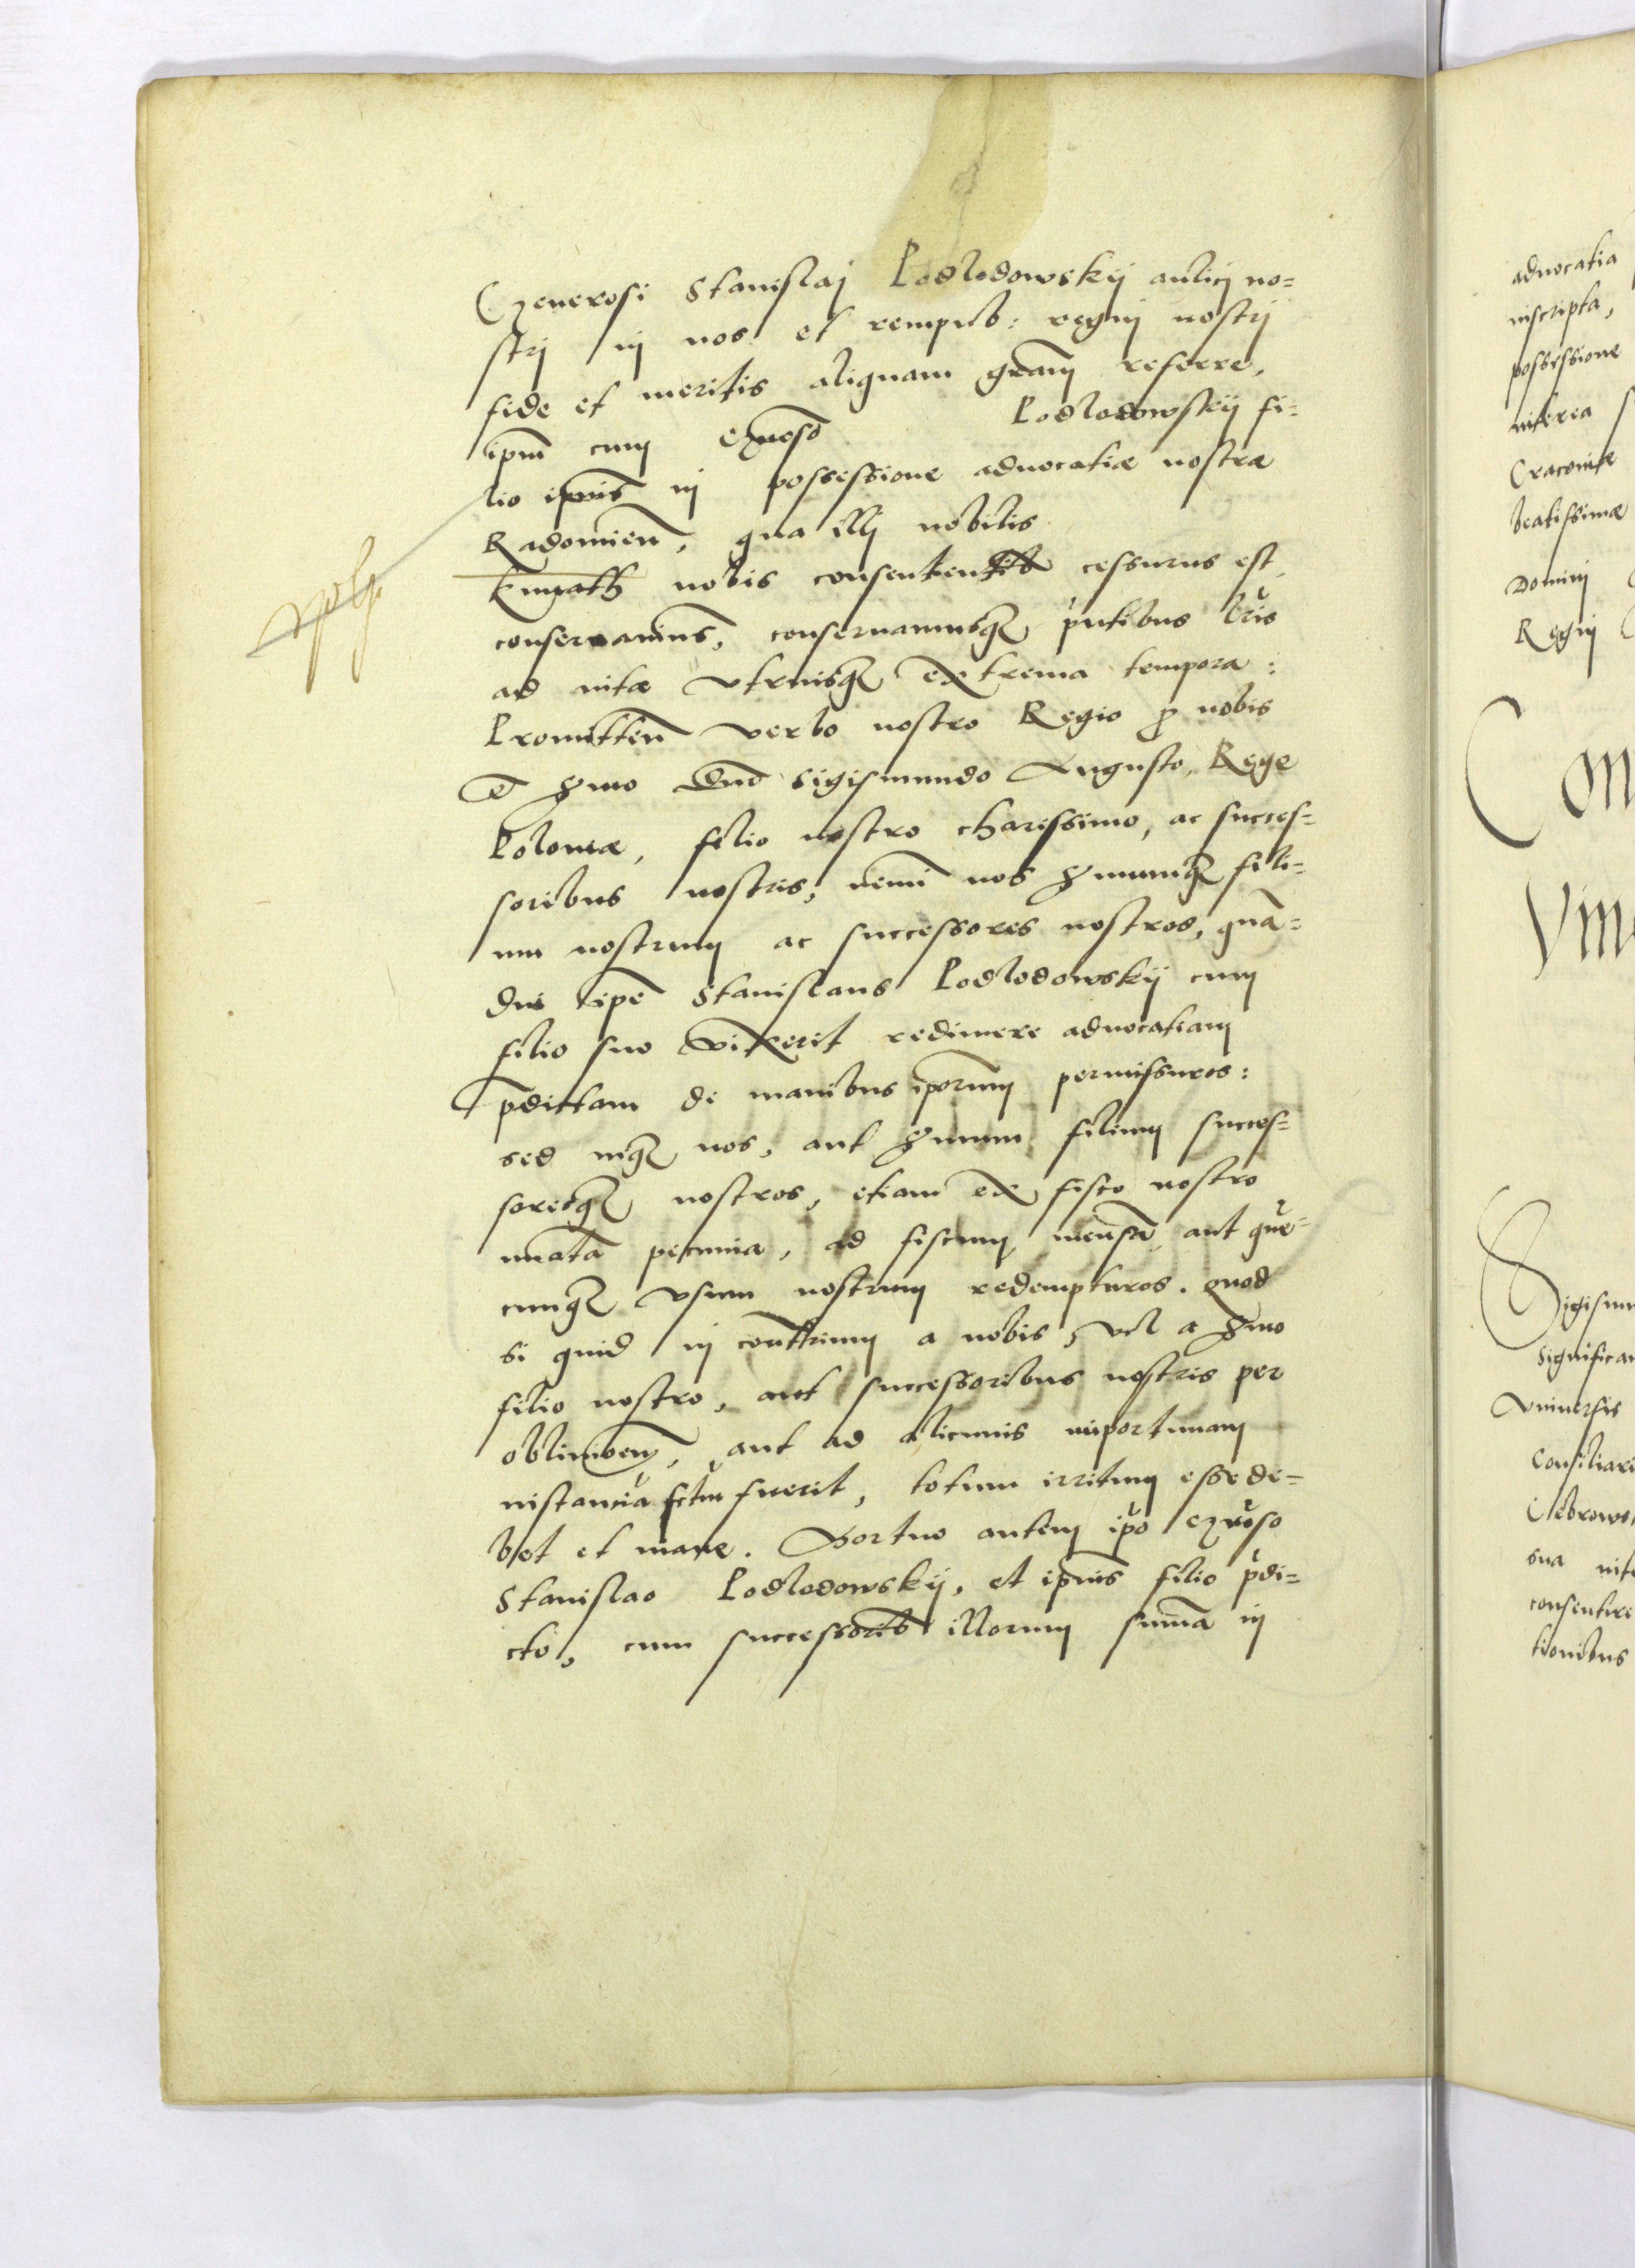 Generosi Stanislaj Podlodowskij aulicj no=
strj in nos et rempub: regnj nostrj
fide et meritis aliquam gram referre,
ipm cum gnoso Podlodowskij fi=
lio ipius in possessione aduocatiæ nostræ
Radomien, qua illj nobilis
nobis consentientib cessurus est,
conseruamus, conseruamusq pntibus lris
ad vitæ vtriusq extrema tempora:
Promitten verbo nostro Regio p nobis
et Smo Dno Sigismundo Augusto, Rege
Poloniæ, filio nostro charissimo, ac succes=
soribus nostris, nemi nos Smumq fili=
um nostrum ac successores nostros, qua=
diu ipe Stanislaus Podlodowskij cum
filio suo vixerit redimere aduocatiam
pdictam de manibus iporum permissuros:
sed neq nos, aut Smum filium succes=
soresq nostros, etiam ex fisco nostro
nuata pecunia, ad fiscum, mensa, aut que=
cunq vsum nostrum redempturos. quod
si quid in contrium a nobis, vel a Smo
filio nostro, aut successoribus nostris per
obliuioem, aut ad alicuius importunam
instancia fctm fuerit, totum irritum esse de=
bet et inane. Mortuo autem ipo gnoso
Stanislao Podlodowskij, et ipius filio pdi=
cto, cum successorib illorum summa in
aduocatia
inscripta,
possessione
interea
Cracouiæ
beatissimæ
Dominj
Regnj
Con
Vin
Sigismun
significam
vniuersis
consiliari
sua
consentire
tionibus